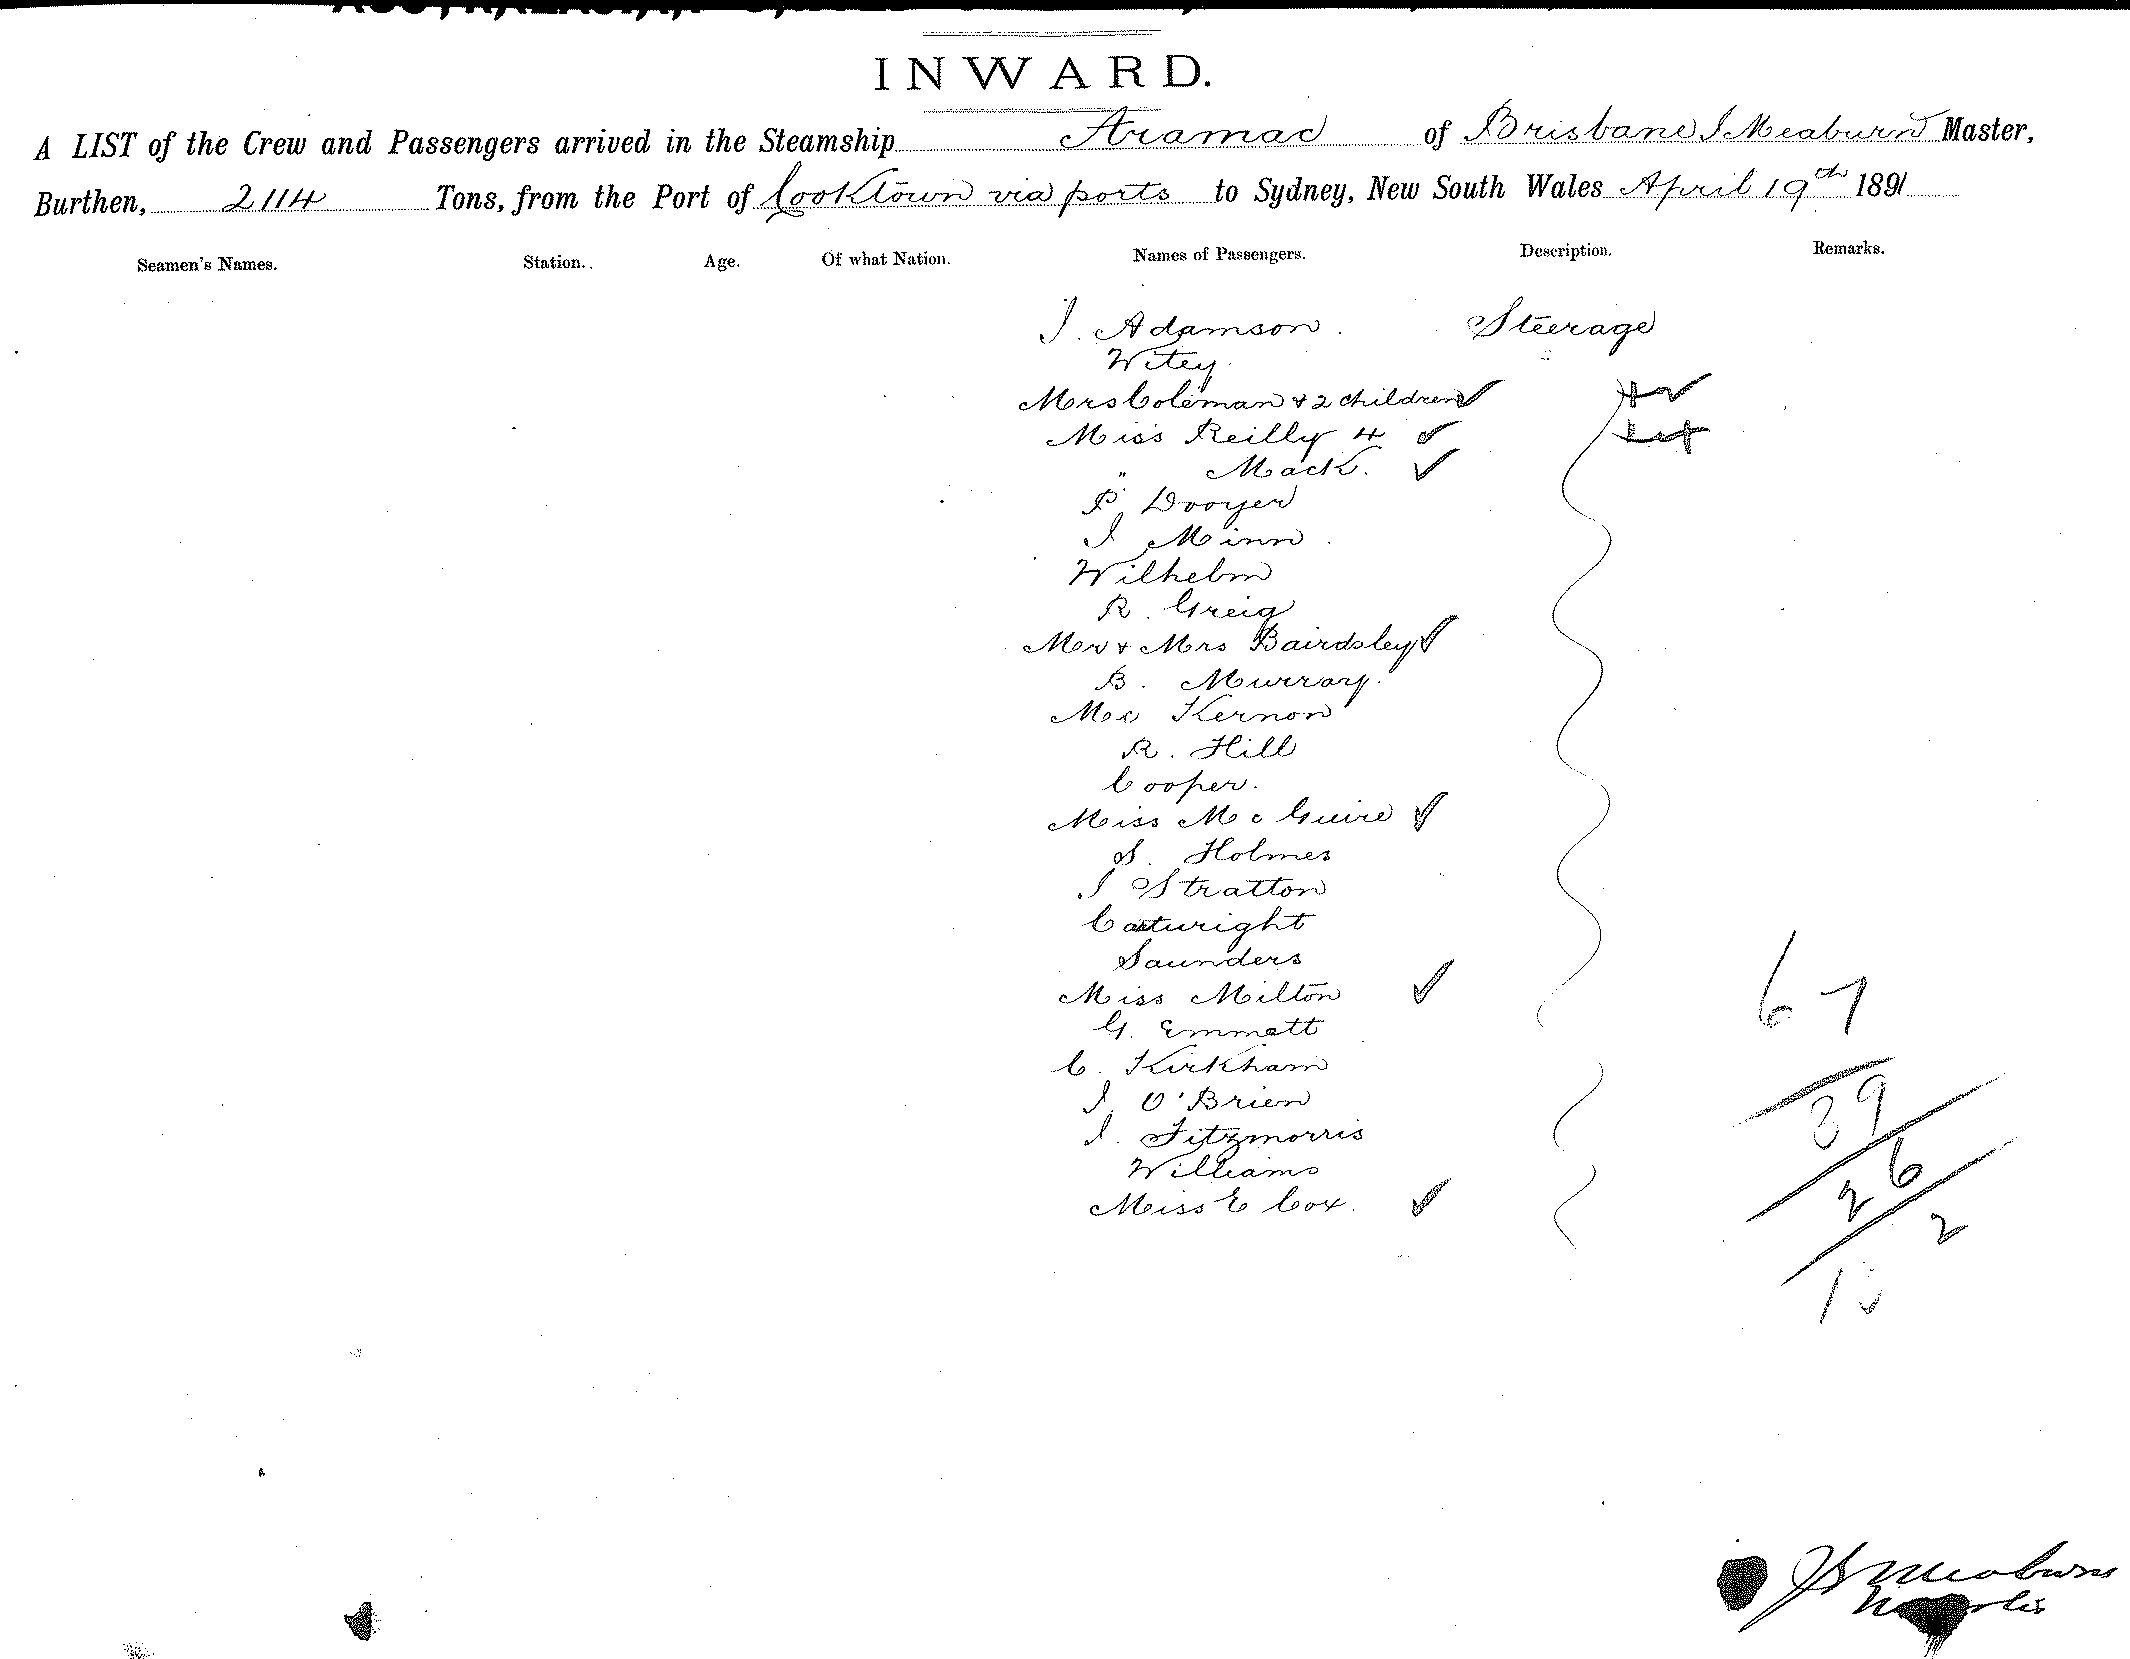 INWARD.
A LIST of the Crew and Passengers arrived in the Steamship Aramac of Brisbane J Meaburn Master,
Burthen, 2114 Tons, from the Port of Cooktown via ports to Sydney, New South Wales April 19th 1891
Seamen's Names. Station. Age. Of what Nation. Names of Passengers. Description. Remarks.
J. Adamson. Steerage
Witey
Mrs Coleman & 2 children ✓
Miss Reilly 4 ✓
" Mack. ✓
P. Dwyer
J Minn
Wilhelm
R. Greig
Mr & Mrs Bairdsley ✓
B. Murray.
Mc Kernon
R. Hill
Cooper.
Miss Mc Guire ✓
S. Holmes
J Stratton
Catwright
Saunders
Miss Milton ✓
G. Emmett
C. Kirkham
J. O'Brien
J. Fitzmorris
Williams
Miss E Cox. ✓
67
39
26
2
J S Meaburn